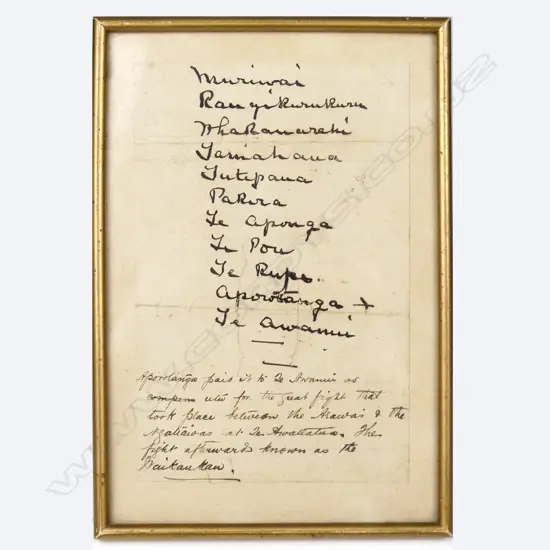 Muriwai
Rangikurukuru
Whakanarehi
Tamahaua
Tutepaua
Pakira
Te Aponga
Te Pou
Te Rupe.
Aporotanga +
Te Awanui
Aporotanga paid it to Te Awanui as
utu for the great fight that
took place between the Arawas & the
Ngatiawas at Te Awaateatua. The
fight afterwards known as the
Kaikaukau.